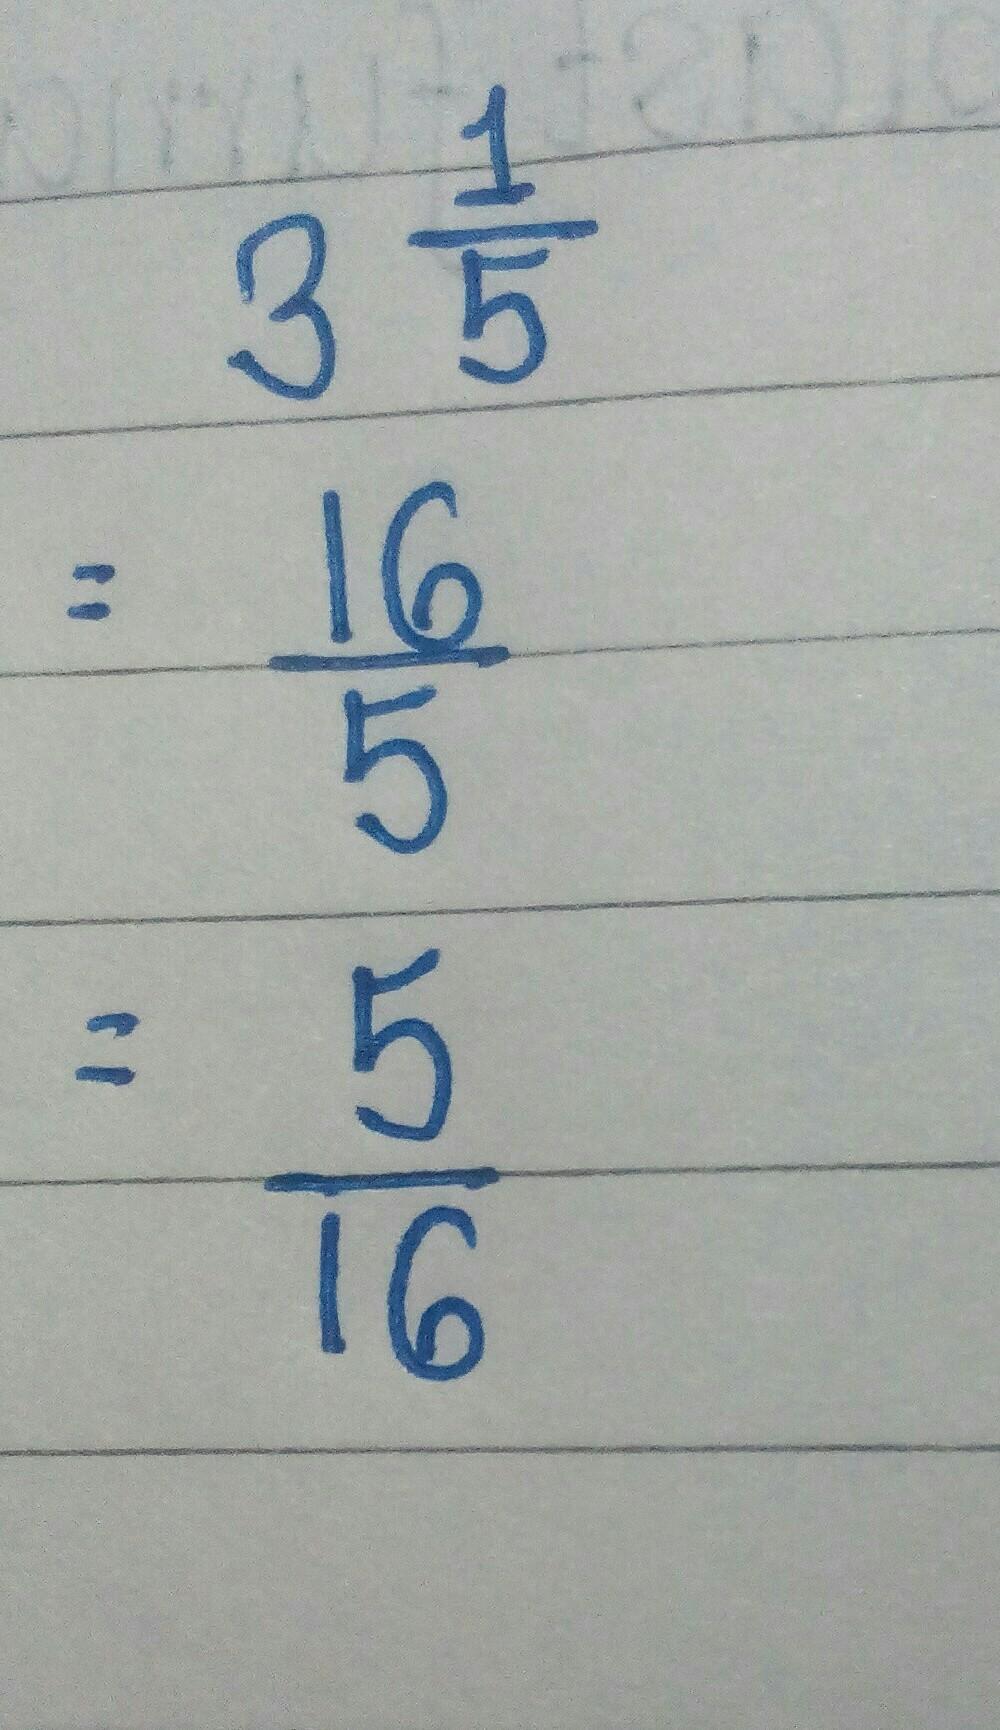 3 1/5
= 16/5
= 5/16